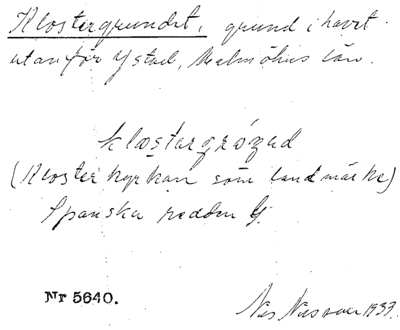 Klostergrundet, grund i havet
utanför Ystad, Malmöhus län.
klostargrózud
(Klosterkyrkan som landmärke)
Spanska redden
Nr 5640.
Nils 1933.